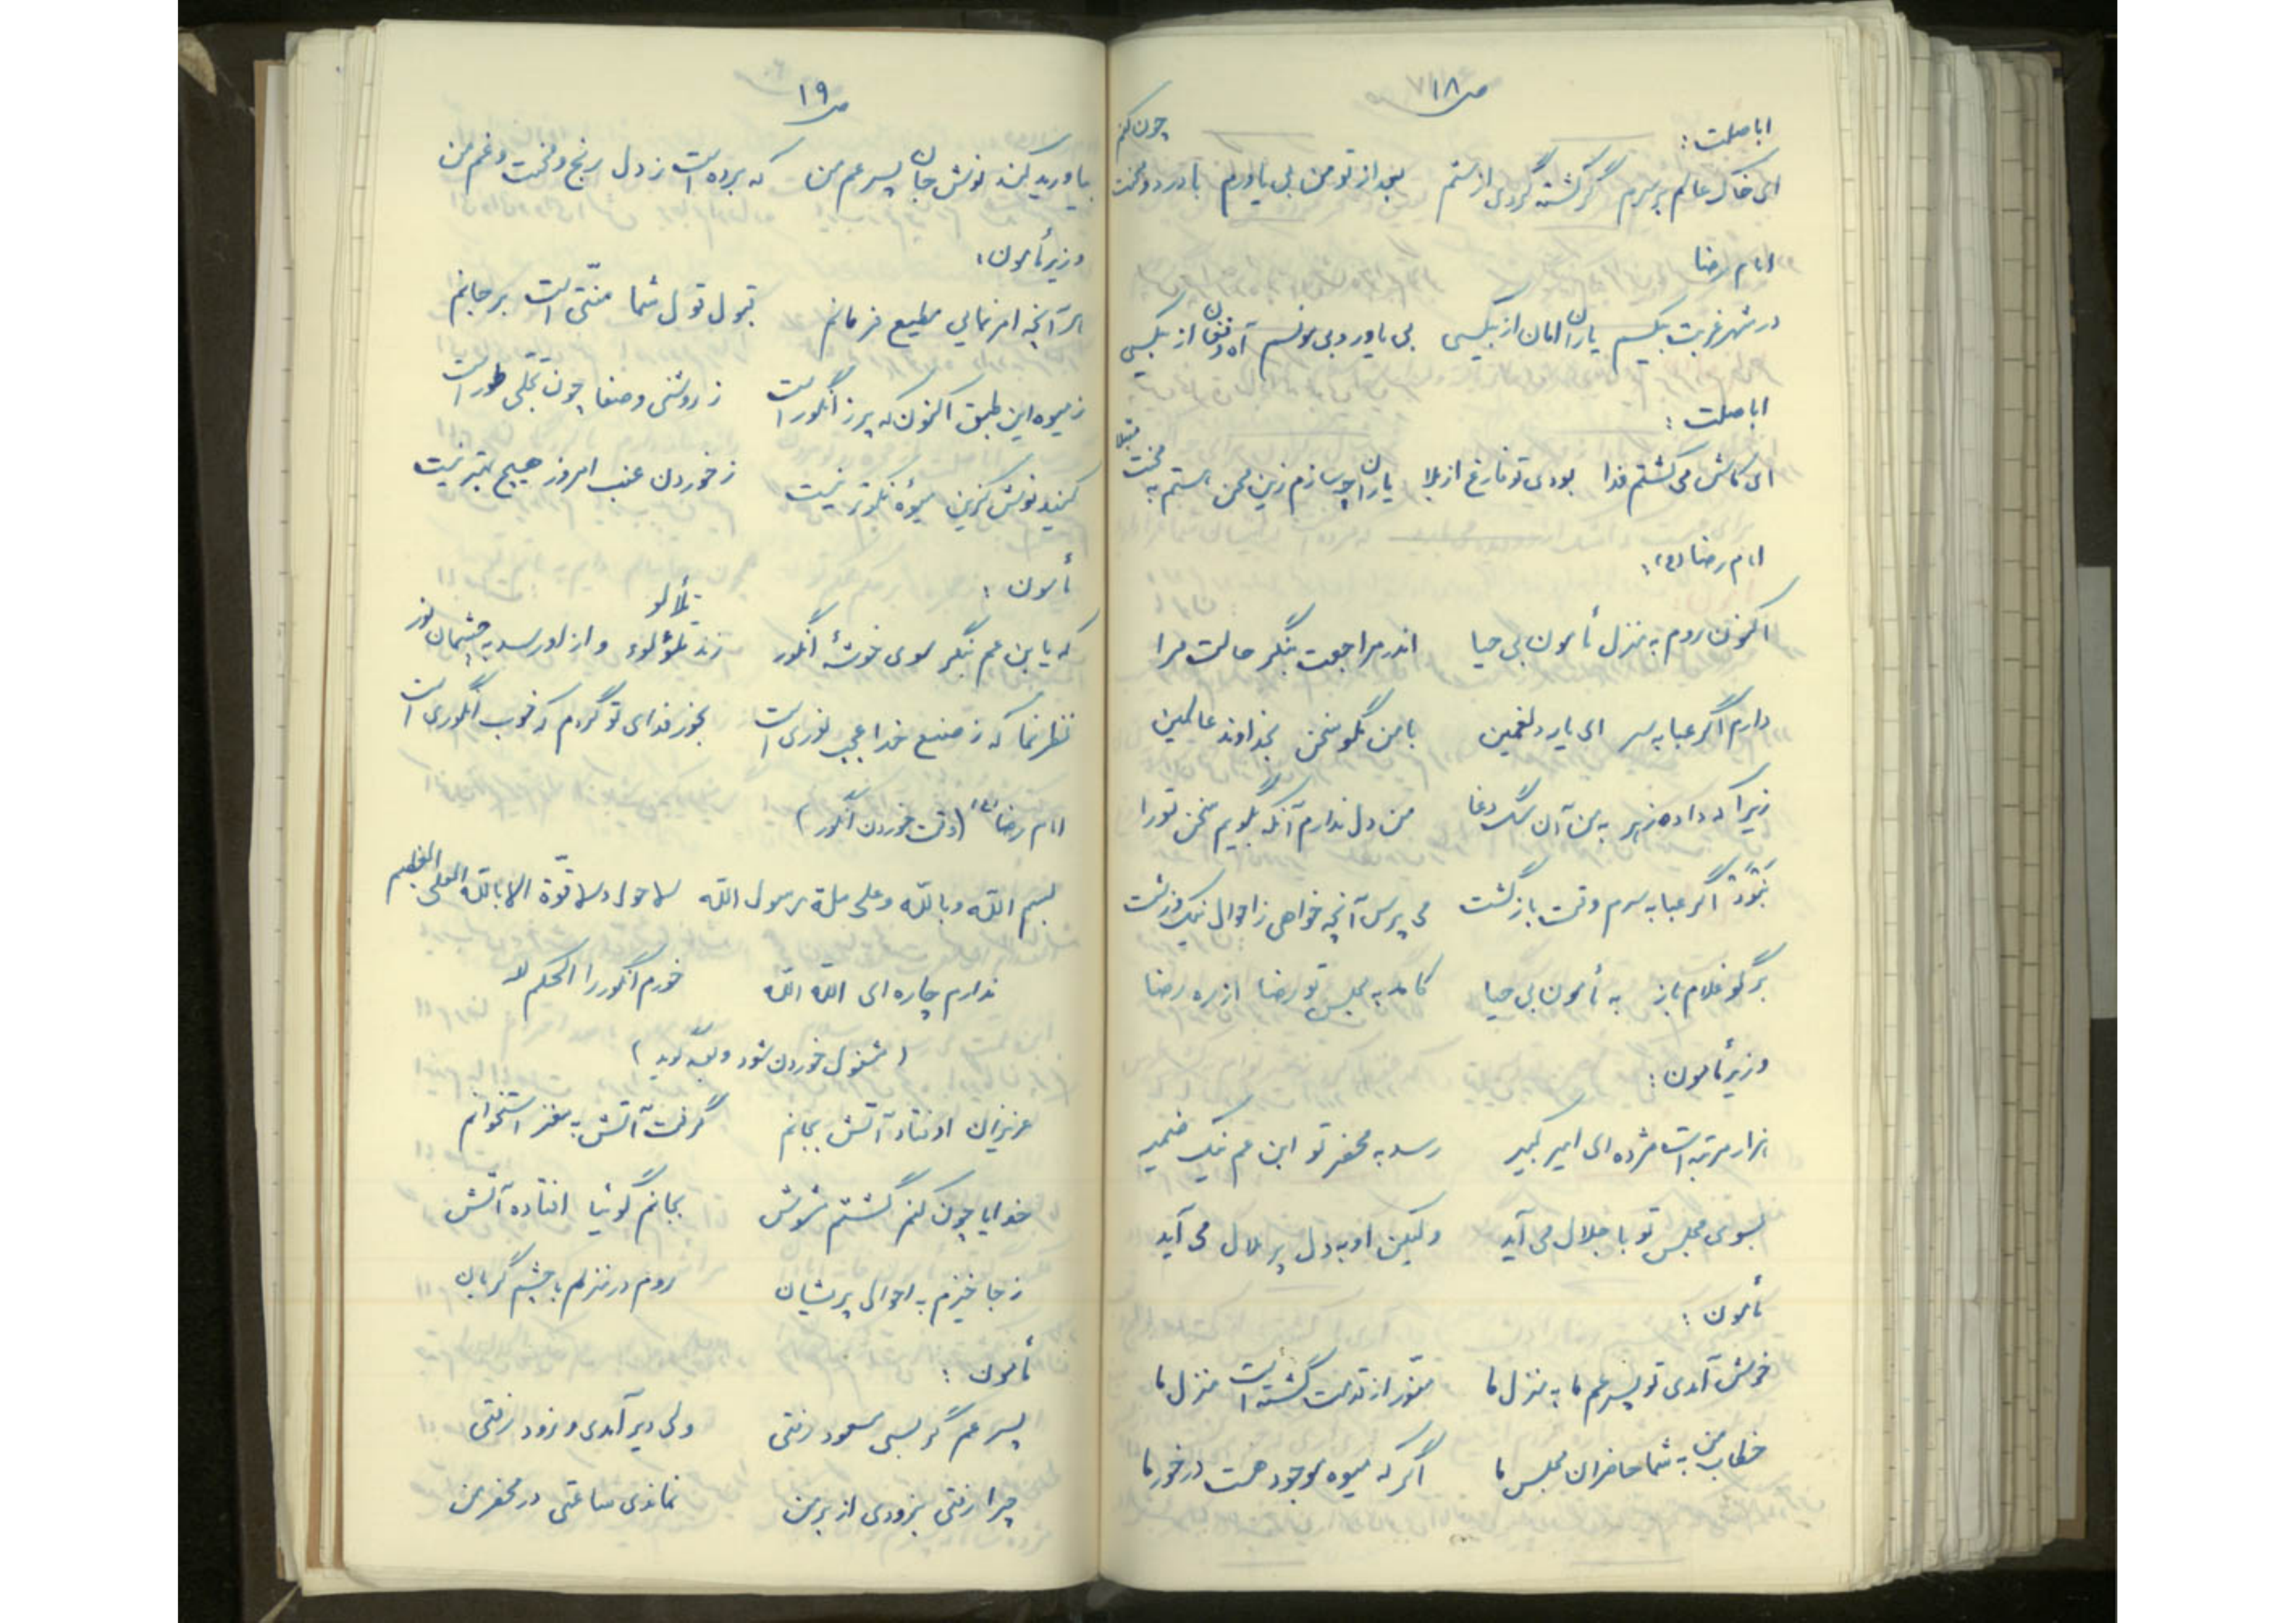 ص ۱۸
اباصلت:
ای خاک عالم بر سرم گر کشته گردی از ستم بعد از تو من بی یاورم با درد و محنت چون کنم
امام رضا
در شهر غربت بیکسم یاران امان از بیکسی بی یاور و بی مونسم آه و فغان از بیکسی
اباصلت:
ای کاش می گشتم فدا بودی تو فارغ از بلا یاران چه سازم زین محن هستم به محنت مبتلا
امام رضا (ع):
اکنون روم به منزل مأمون بی حیا اندر مراجعت بنگر حالت مرا
دارم اگر عبا به سر ای یار دلغمین با من مگو سخن بخداوند عالمین
زیرا که داده زهر به من آن سگ دغا من دل ندارم آنکه بگویم سخن تو را
نَبْوَد اگر عبا به سرم وقت بازگشت می پرس آنچه خواهی ز احوال نیک و زشت
بر گو غلام باز به مأمون بی حیا کآمد به مجلس تو رضا از ره رضا
وزیر مأمون:
هزار مرتبه است مژده ای امیر کبیر رسد به محضر تو ابن عم نیک ضمیر
بسوی مجلس تو با جلال می آید ولیکن او به دل پر ملال می آید
مأمون:
خوش آمدی تو پسر عم ما به منزل ما منّور از قدمت گشته است منزل ما
خطاب من به شما حاضران مجلس ما اگر که میوه موجود هست در خور ما
ص ۱۹
بیاورید کند نوش جان پسر عم من که برده است ز دل رنج و محنت و غم من
وزیر مأمون:
هر آنچه امر نمایی مطیع فرمانم قبول قول شما منّتی است بر جانم
ز میوه این طبق اکنون که پر ز انگور است ز روشنی و صفا چون تجلی طور است
کنید نوش کزین میوهٔ نکوتر نیست ز خوردن عنب امروز هیچ بهتر نیست
مأمون:
که یابن عم بنگر سوی خوشهٔ انگور زند تلؤلوء و از او رسد به چشمان نور
تلألو
نظر نما که ز صنع خدا عجب نوری است بخور فدای تو گردم که خوب انگوری است
امام رضا (ع) (وقت خوردن انگور)
بسم اللّه و باللّه و علی ملة رسول اللّه لا حول و لا قوّة الا باللّه العلی العظیم
ندارم چاره ای اللّه اللّه خورم انگور را الحکم لله
(مشغول خوردن شود و بقیّه گوید)
عزیزان اوفتاد آتش بجانم گرفت آتش به مغز استخوانم
خدایا چون کنم گشتم مشوش بجانم گوئیا افتاده آتش
ز جا خیزم به احوال پریشان روم در منزلم با چشم گریان
مأمون:
پسر عم گر بسی مسعود رفتی ولی دیر آمدی و زود رفتی
چرا رفتی بزودی از بر من نماندی ساعتی در محضر من